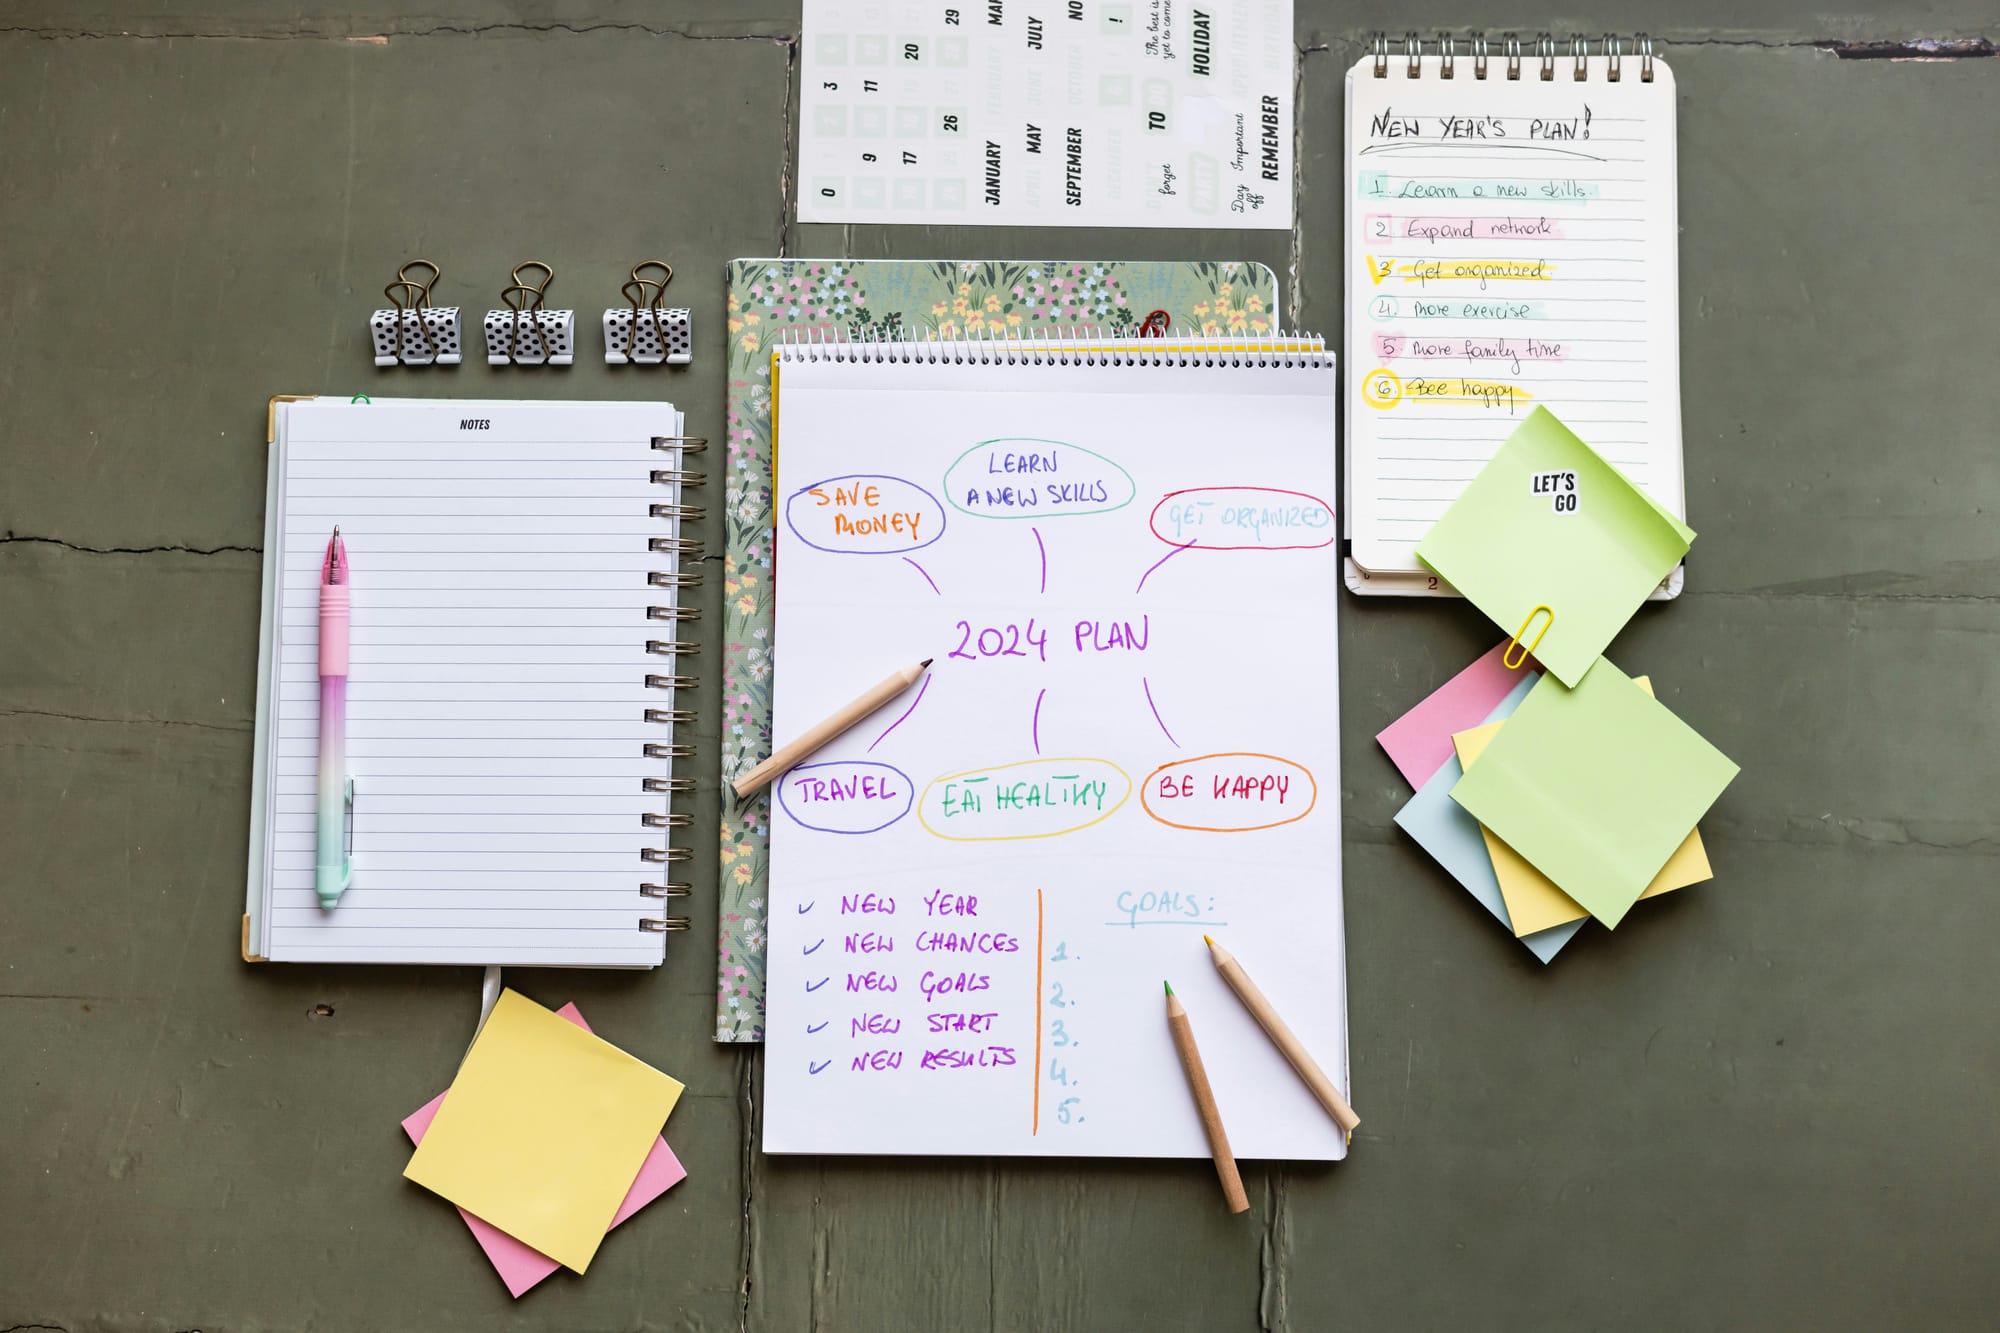 0 3
9 11
17 20
26 29
JANUARY FEBRUARY MAR
APRIL MAY JUNE JULY
SEPTEMBER OCTOBER NO
DECEMBER !
forget TO DO The best is
yet to come
PARTY HOLIDAY
Day off Important
REMEMBER BIRTHDAY
NEW YEAR'S PLAN!
1. Learn a new skills.
2 Expand network
3 Get organized.
4. more exercise
5. more family time
6. Bee happy
LET'S
GO
2
NOTES
SAVE
MONEY
LEARN
A NEW SKILLS
GET ORGANIZED
2024 PLAN
TRAVEL
EAT HEALTHY
BE HAPPY
✓ NEW YEAR
✓ NEW CHANCES
✓ NEW GOALS
✓ NEW START
✓ NEW RESULTS
GOALS:
1.
2.
3.
4.
5.